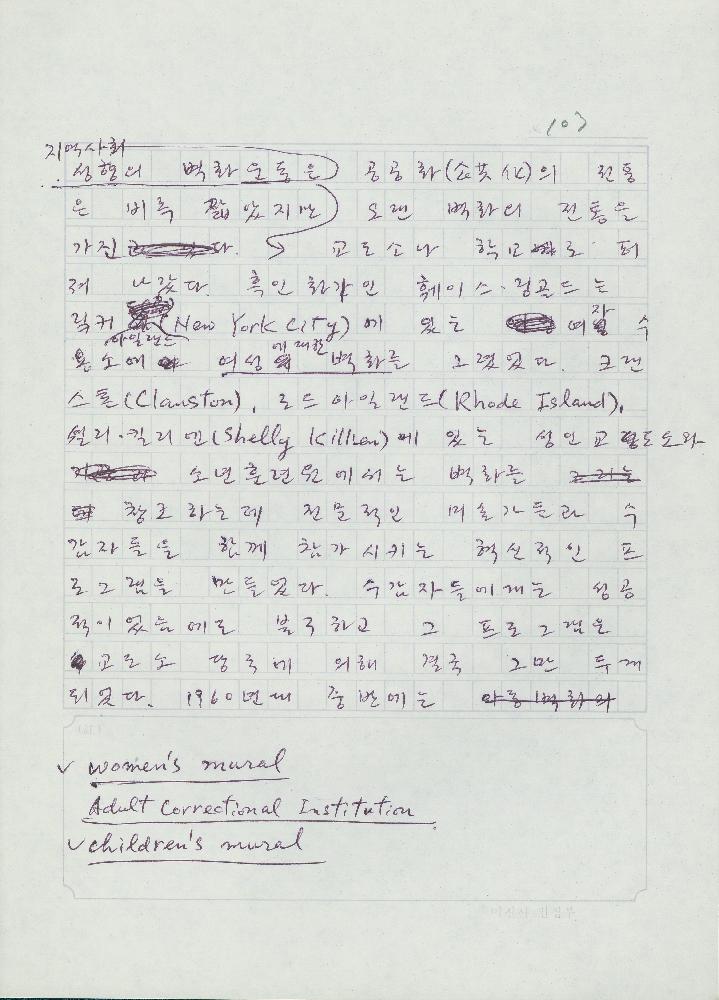 103
지역사회
성향의 벽화운동은 공공화(公共化)의 전통
은 비록 짧았지만 오랜 벽화의 전통을
가진 다. 교도소나 학교로 퍼
져 나갔다. 흑인 화가인 훼이스·링골드는
릭커 (New York City)에 있는 여자 수
아일랜드 에 대한
용소에 여성 벽화를 그렸었다. 크랜
스톤(Clanston), 로드아일랜드(Rhode Island),
쉘리·킬리엔(Shelly Killen)에 있는 성인교도소와
소년훈련원에서는 벽화를 그리는
창조하는데 전문적인 미술가들과 수
감자들을 함께 참가시키는 혁신적인 프
로그램을 만들었다. 수감자들에게는 성공
적이었음에도 불구하고 그 프로그램은
교도소 당국에 의해 결국 그만 두게
되었다. 1960년대 중반에는 아동벽화와
women's mural
Adult Correctional Institution
children's mural